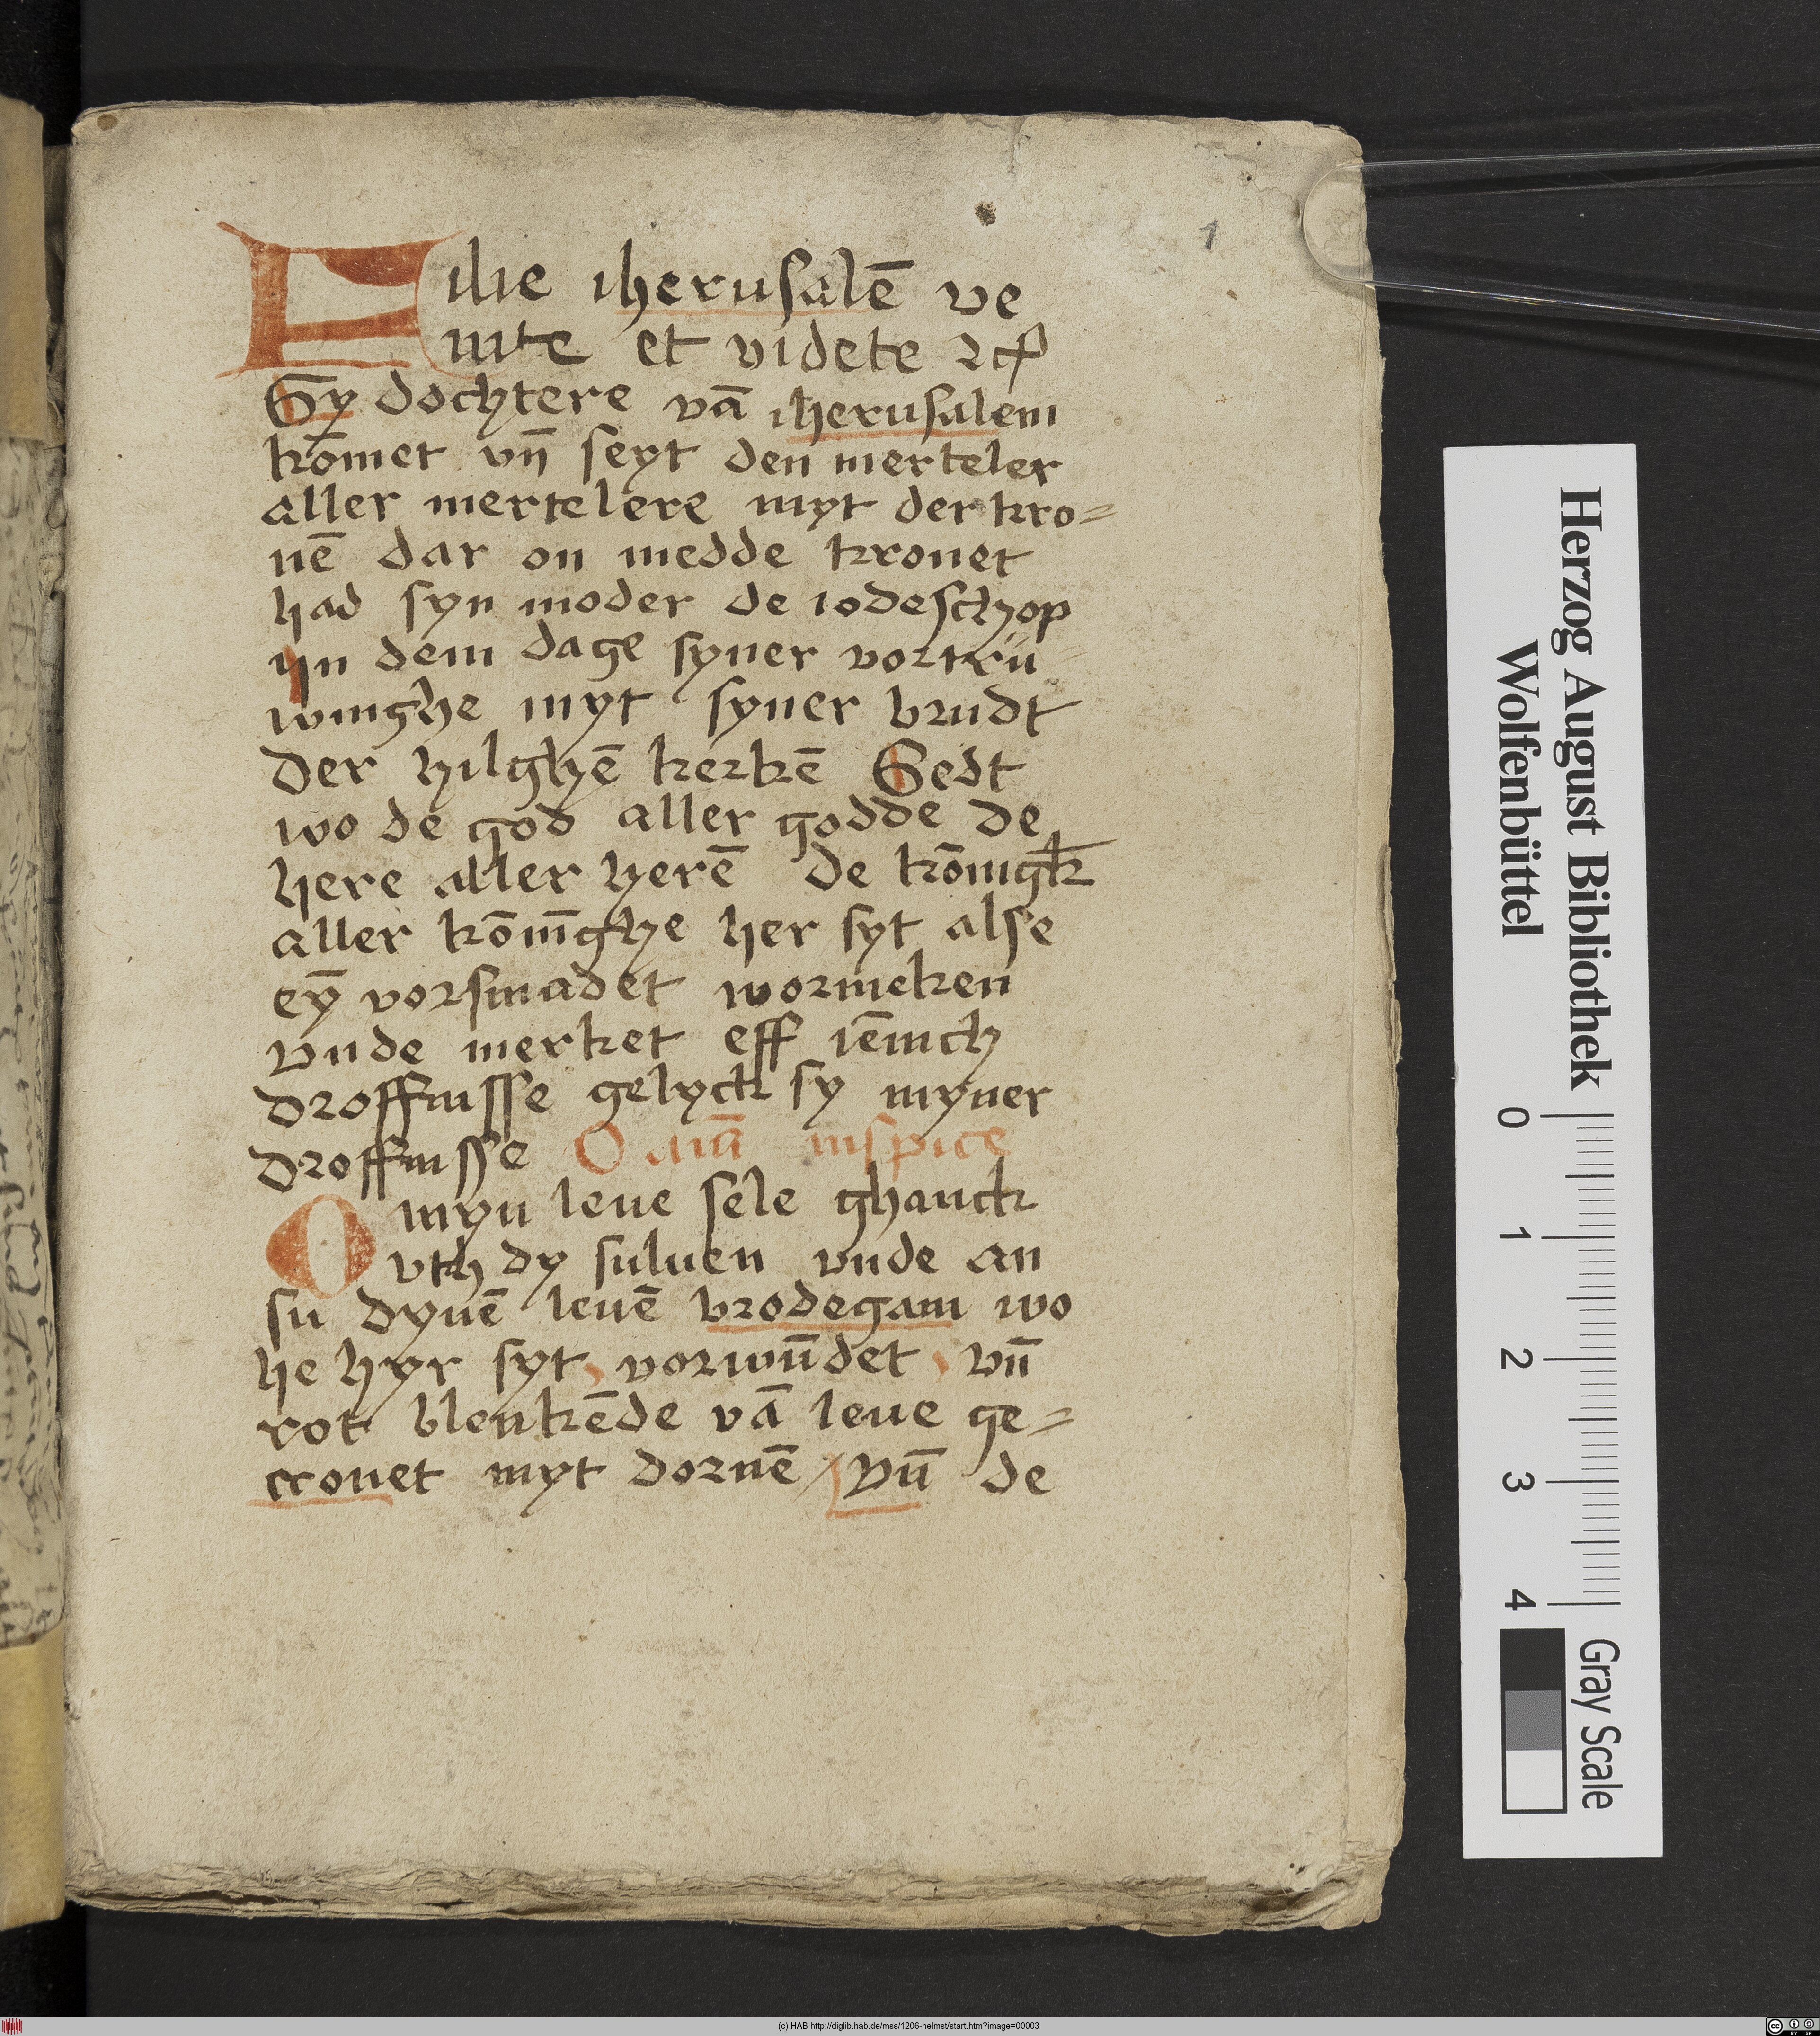 1
Filie iherusalē ve
nite et videte ⁊cꝭ
Gy dochtere vā iherusalem
kōmet vn̄ seyt den merteler
aller mertelere myt der kro=
nē dar on medde kronet
had syn moder de iodeschop
yn dem dage syner vortrü
winghe myt syner brudt
der hilghē kerkē Sedt
wo de god aller godde de
here aller herē de kōnigk
aller kōnīghe her syt alse
eȳ vorsmadet wormeken
vnde merket eff iēnich
droffnisse gelyck sy myner
droffnisse O aīa inspice
O myn leue sele ghanck
vth dy suluen vnde an
su dynē leuē brodegam wo
he hyr syt vorwūdet vn̄
rot blenkēde vā leue ge=
cronet myt dornē / Vn̄ de
Herzog August Bibliothek
Wolfenbüttel
0 1 2 3 4
Gray Scale
(c) HAB http://diglib.hab.de/mss/1206-helmst/start.htm?image=00003